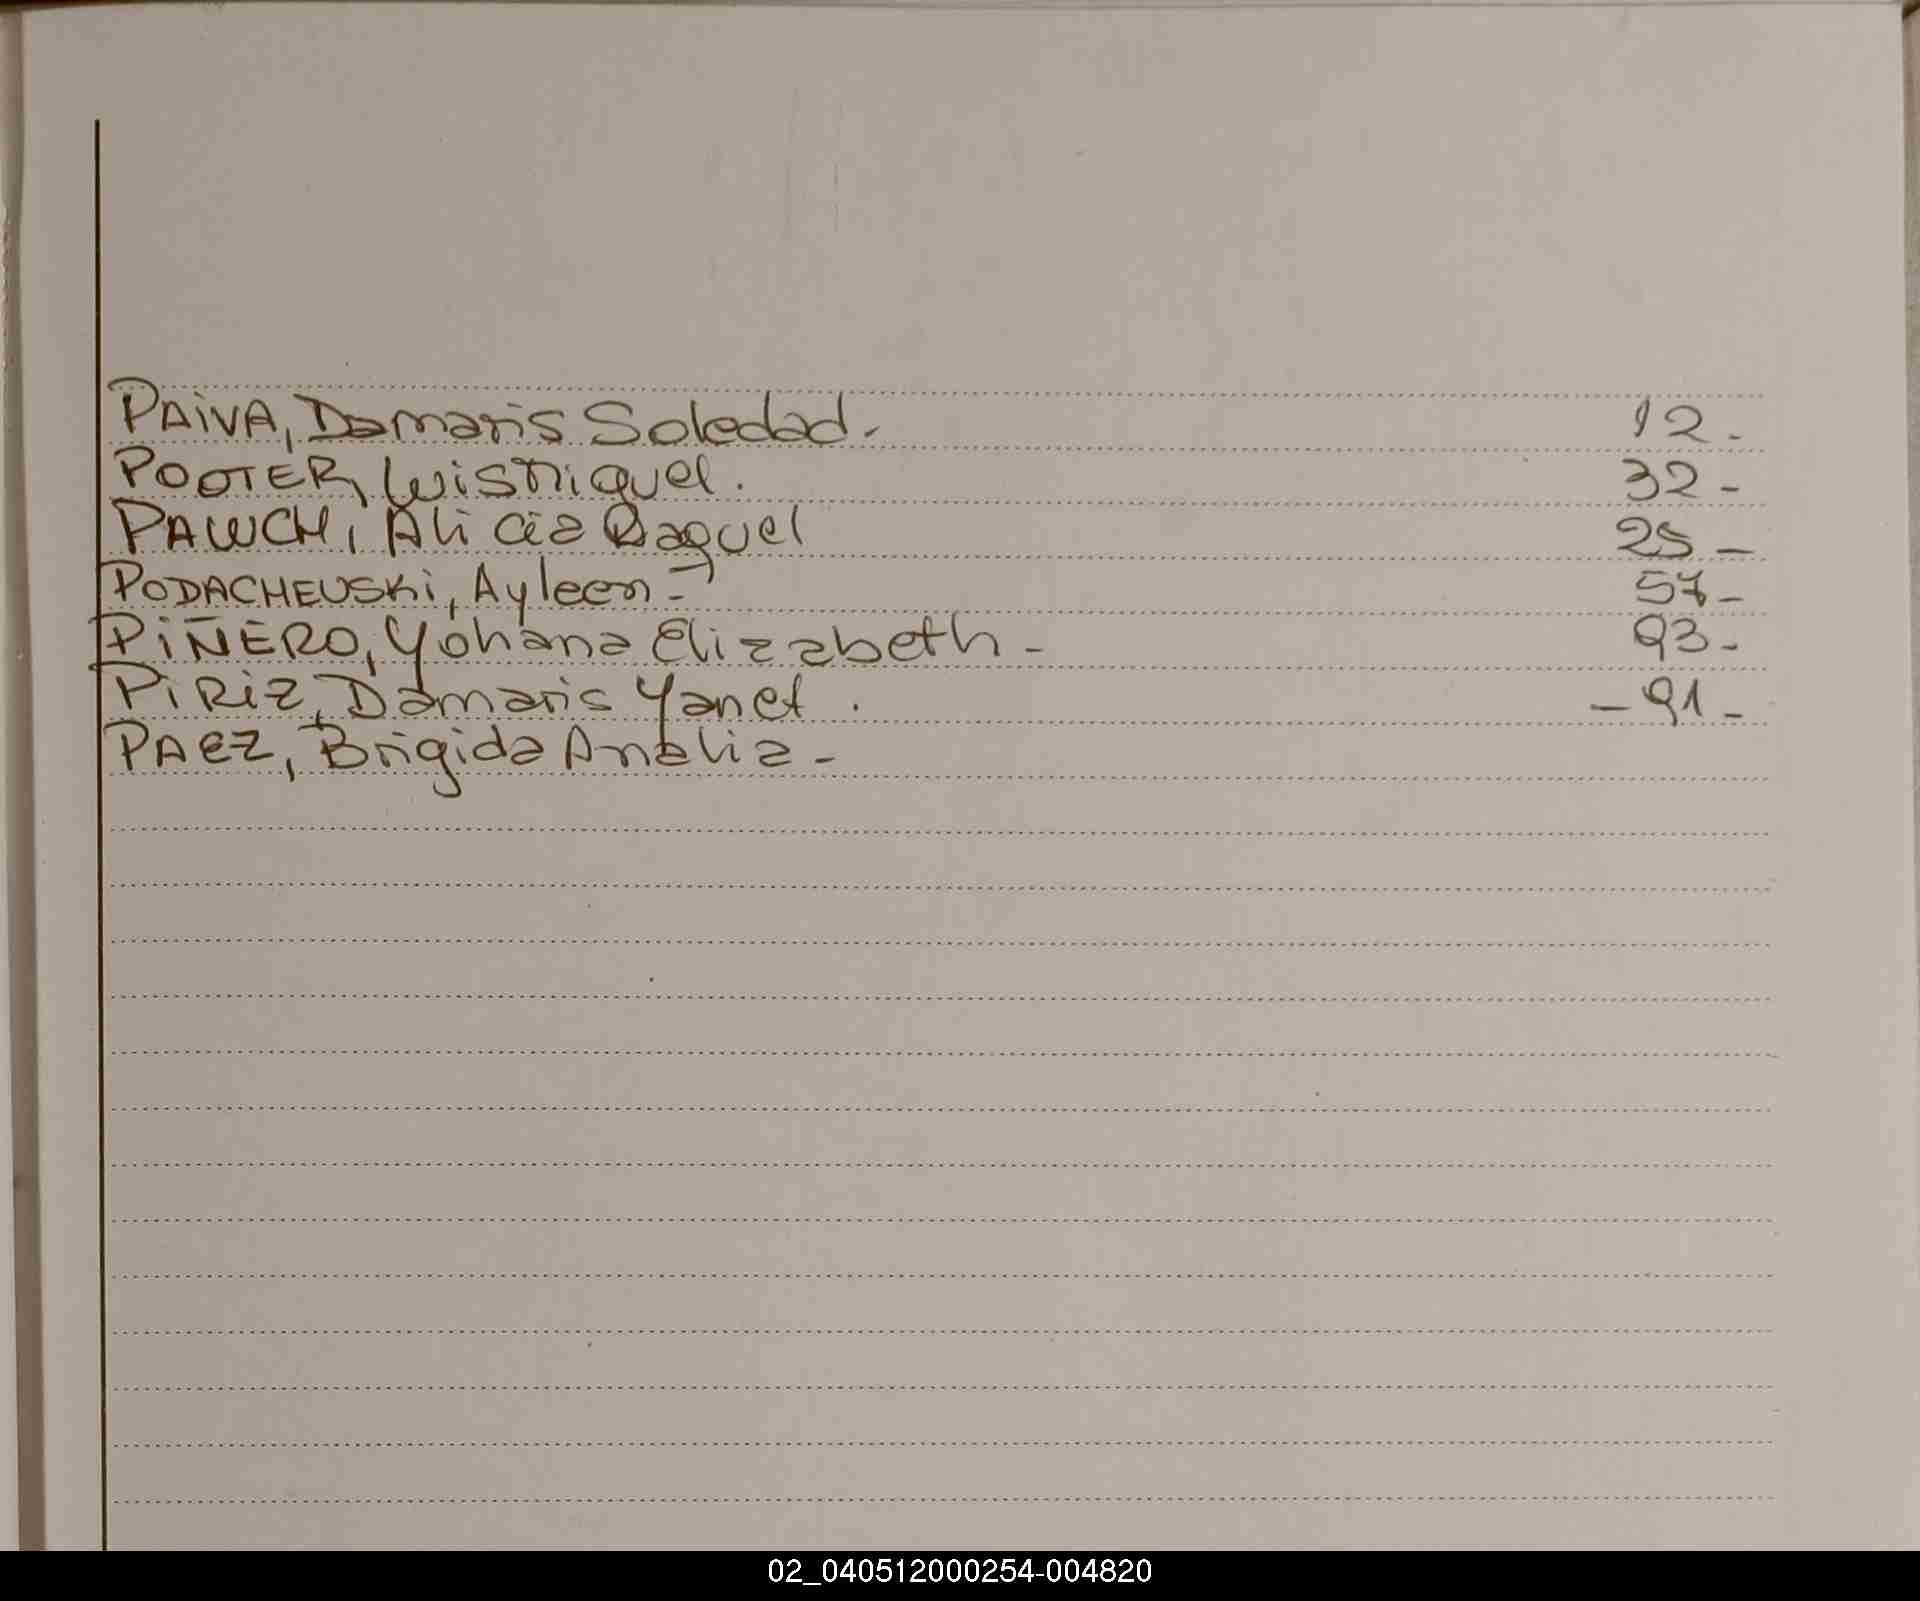 PAIVA, Damaris Soledad. 12.-
POOTER, Luis Miguel. 32-
PAWCH, Alicia Raquel 25-
PODACHEUSKI, Ayleen - 57-
PIÑERO, Yohana Elizabeth - 93-
PIRIZ, Damaris Yanet. - 91-
PAEZ, Brigida Analia -
02_040512000254-004820